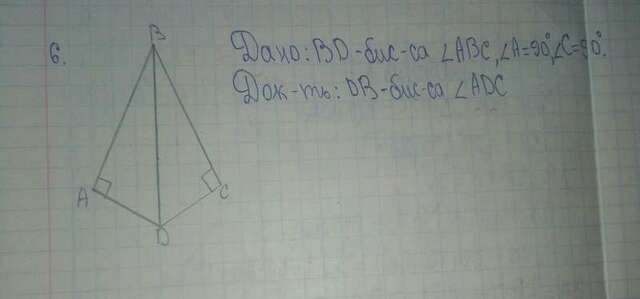 6.
Дано: BD-бис-са ∠ABC, ∠A=90°, ∠C=90°.
Док-ть: DB-бис-са ∠ADC
B
A
C
D